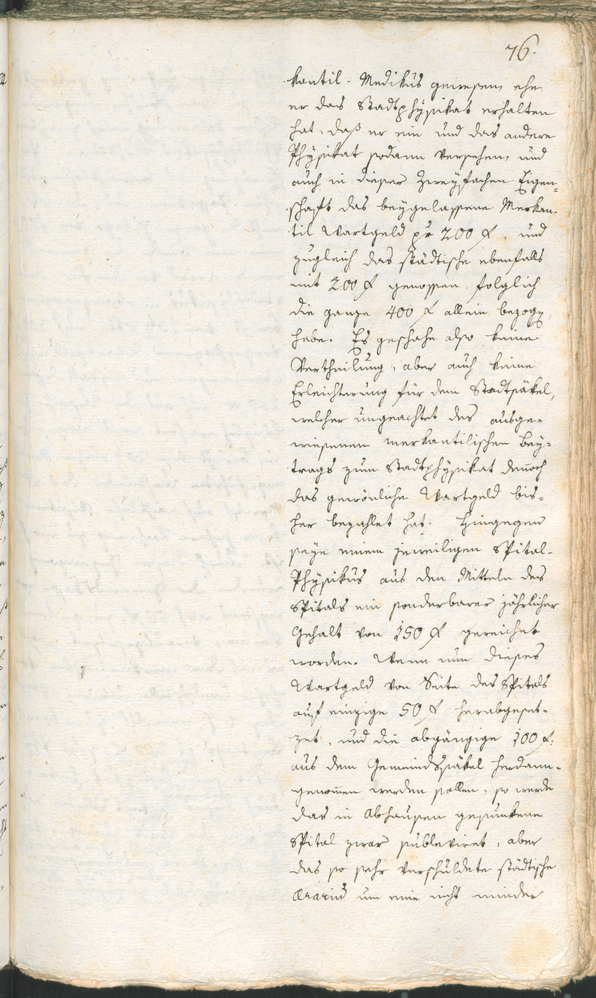 76.
kantil-Medikus gewesen, ehe
er das Stadtphysikat erhalten
hat, daß er ein und das andere
Physikat sodann versehen, und
auch in dieser zweyfachen Eigen-
schaft das beygelassene Merkan-
til Wartgeld pr 200 f, und
zugleich das städtische ebenfalls
mit 200 f genossen, folglich
die ganze 400 f allein bezogen
habe. Es geschahe also keine
Vertheilung, aber auch keine
Erleichterung für dem Stadtsäkel,
welcher ungeachtet des ausge-
wiesenen merkantilischen Bey-
trags zum Stadtphysikat dennoch
das gewönliche Wartgeld bis-
her bezahlet hat. Hingegen
seye einem jeweiligen Spital-
Physikus aus den Mitteln des
Spitals ein sonderbarer jährlicher
Gehalt von 150 f gereichet
worden. Wenn nun dieses
Wartgeld von Seite des Spitals
auf einzige 50 f herabgeset-
zet, und die abgängige 100 f:
aus dem Gemeindssäkel herdann-
genommen werden sollen, so werde
das in Abhausen gesunkene
Spital zwar subleviret, aber
das so sehr verschuldete städtische
Ærarium um eine nicht minder